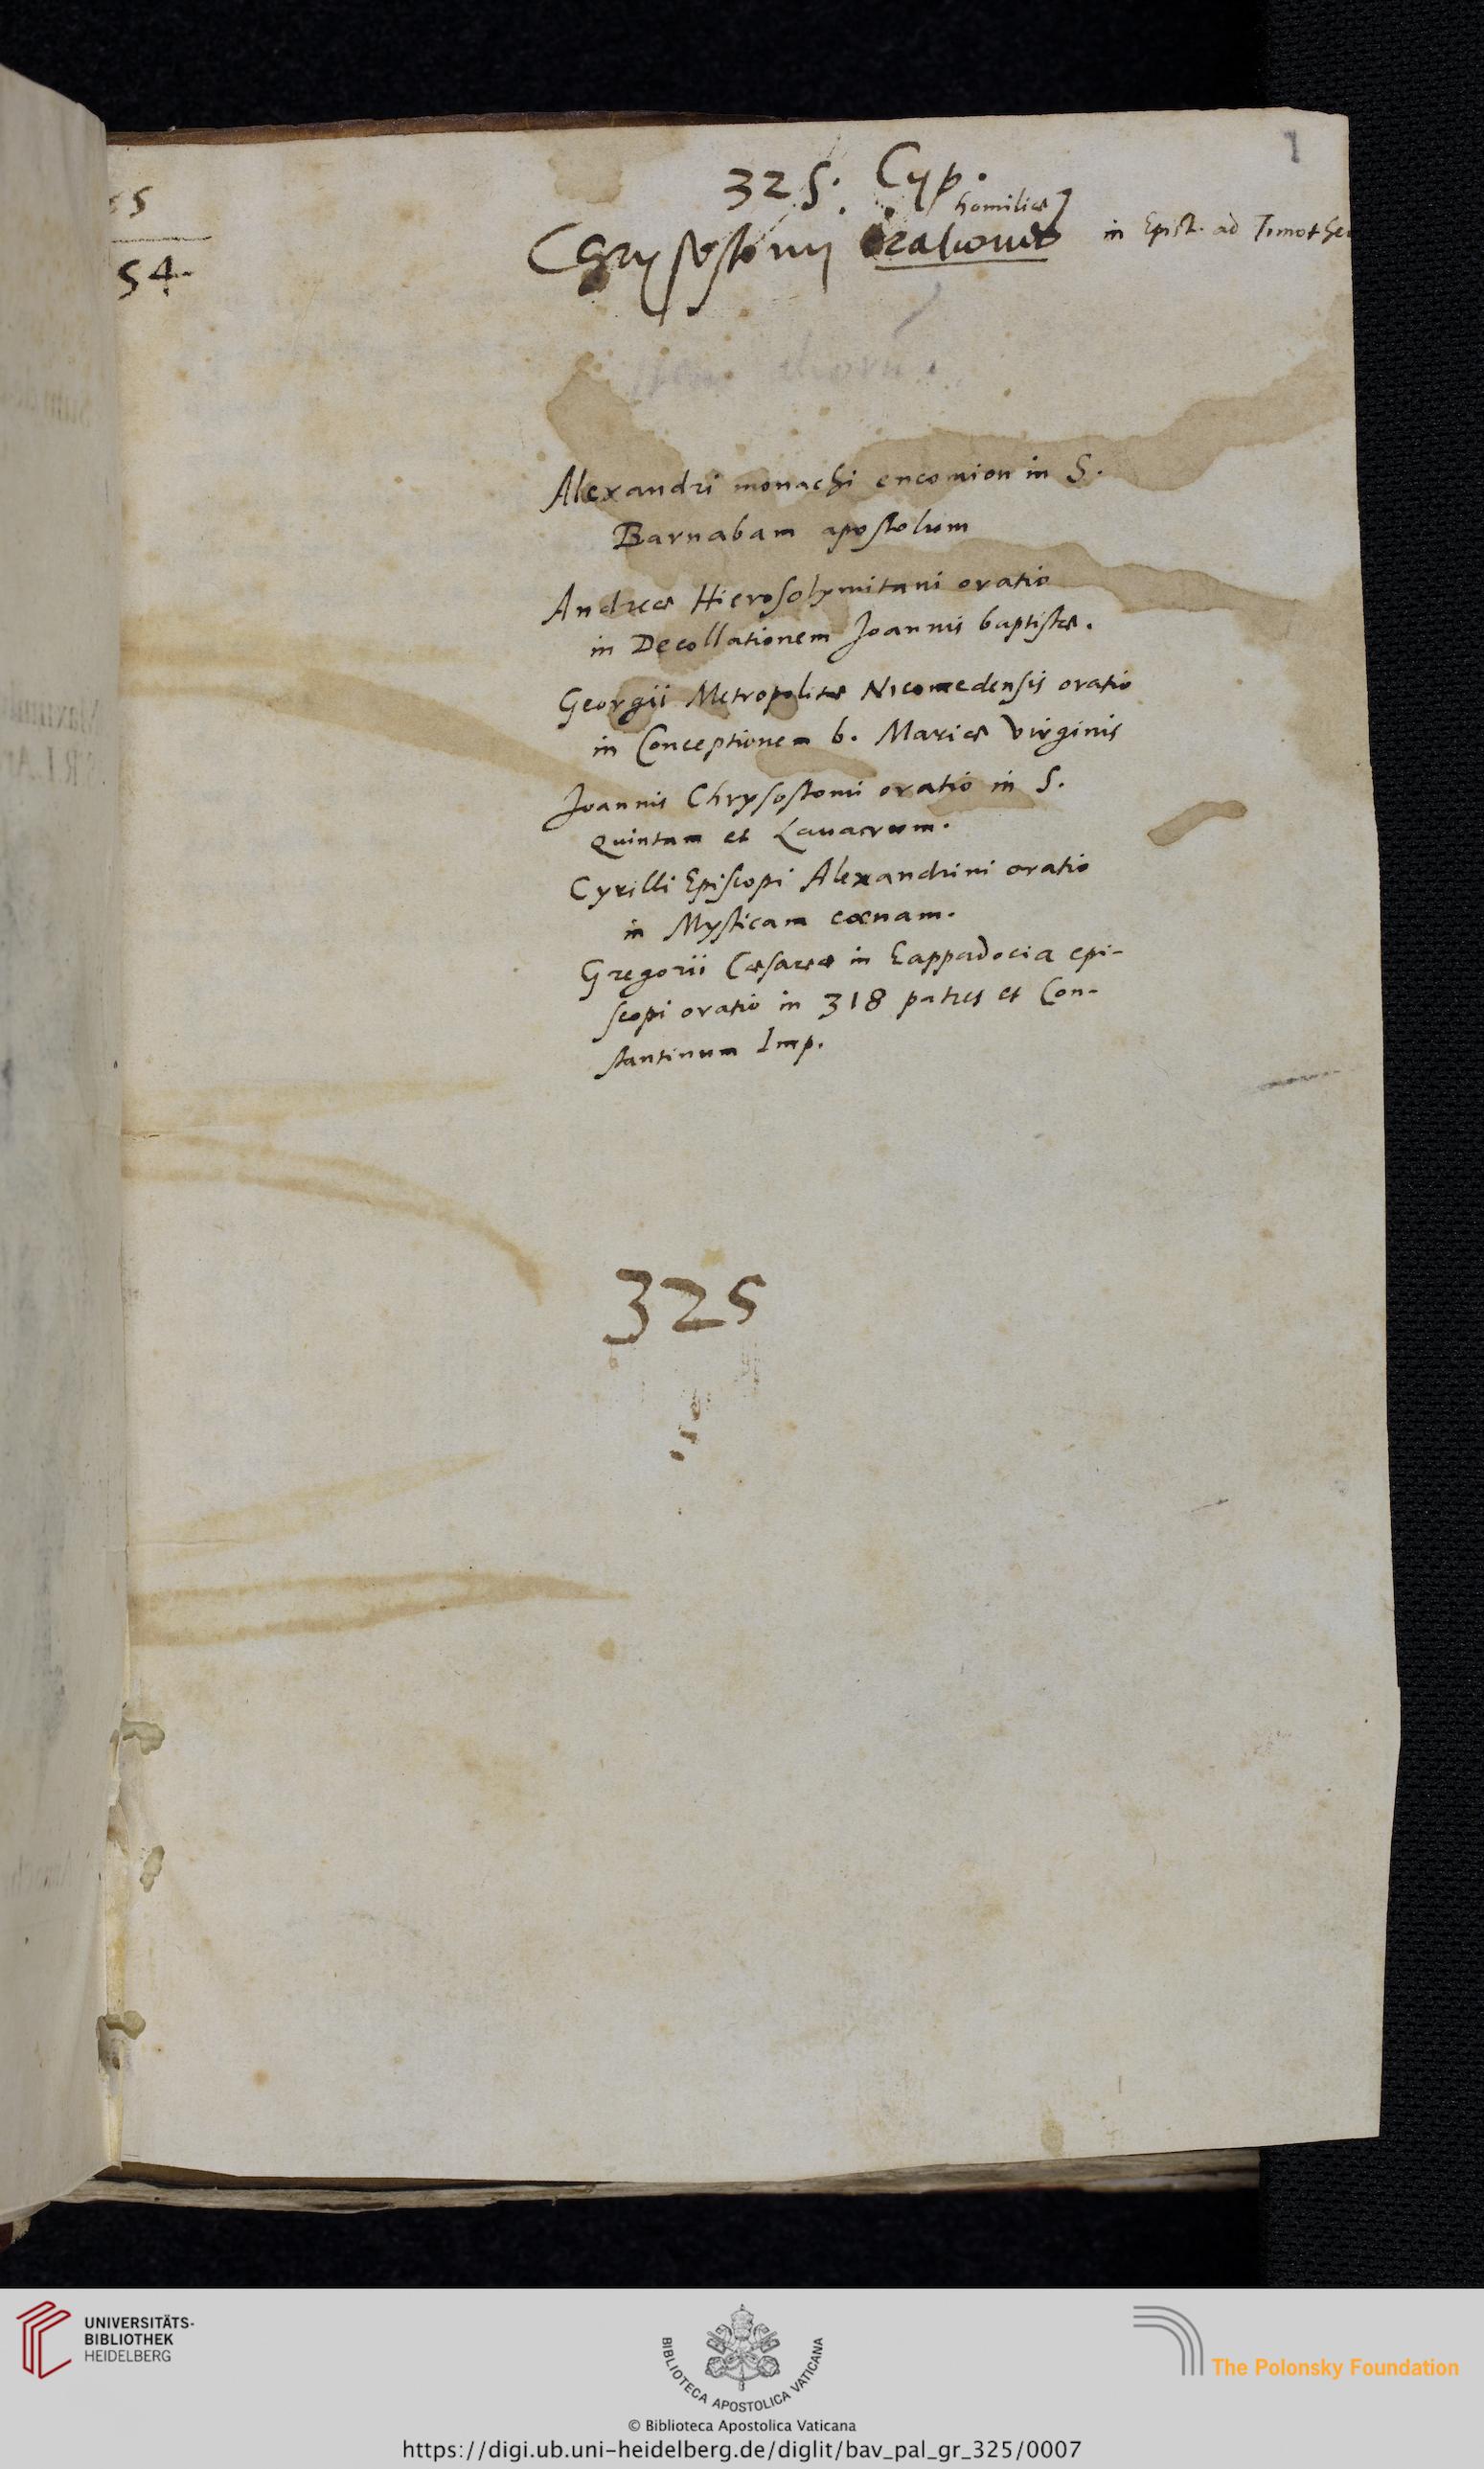 1
55
54.
325. Cyp.
homiliæ
Chrysostomi orationes in Epist. ad Timothe
Alexandri monachi encomion in S.
Barnabam apostolum
Andreæ Hierosolymitani oratio
in Decollationem Joannis baptistæ.
Georgii Metropolitæ Nicomedensis oratio
in Conceptionem b. Mariæ Virginis
Joannis Chrysostomi oratio in S.
Quintam et Lauacrum.
Cyrilli Episcopi Alexandrini oratio
in Mysticam cœnam.
Gregorii Cæsareæ in Cappadocia epi-
scopi oratio in 318 patres et Con-
stantinum Imp.
325
UNIVERSITÄTS-
BIBLIOTHEK
HEIDELBERG
BIBLIOTECA APOSTOLICA VATICANA
The Polonsky Foundation
© Biblioteca Apostolica Vaticana
https://digi.ub.uni-heidelberg.de/diglit/bav_pal_gr_325/0007